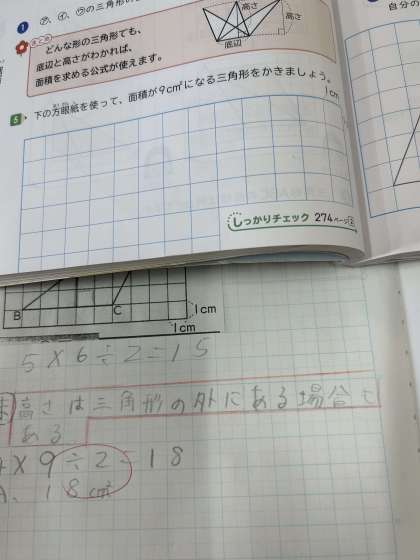 ㋐、㋑、㋒の三角形の
高さ
高さ
底辺
まとめ
どんな形の三角形でも、
底辺と高さがわかれば、
面積を求める公式が使えます。
5 下の方眼紙を使って、面積が9cm²になる三角形をかきましょう。
1cm
しっかりチェック 274ページ
B
C
1cm
1cm
5×6÷2=15
高さは三角形の外にある場合も
ある
×9÷2=18
A. 18cm²
自分の